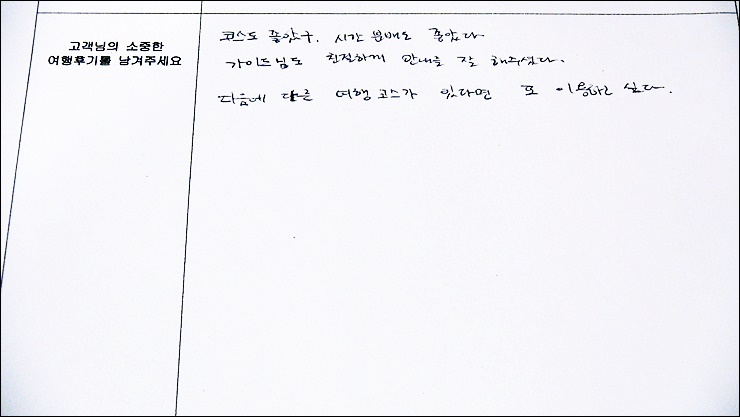 고객님의 소중한
여행후기를 남겨주세요
코스도 좋았구. 시간 분배도 좋았다
가이드님도 친절하게 안내를 잘 해주셨다.
다음에 다른 여행코스가 있다면 또 이용하고 싶다.